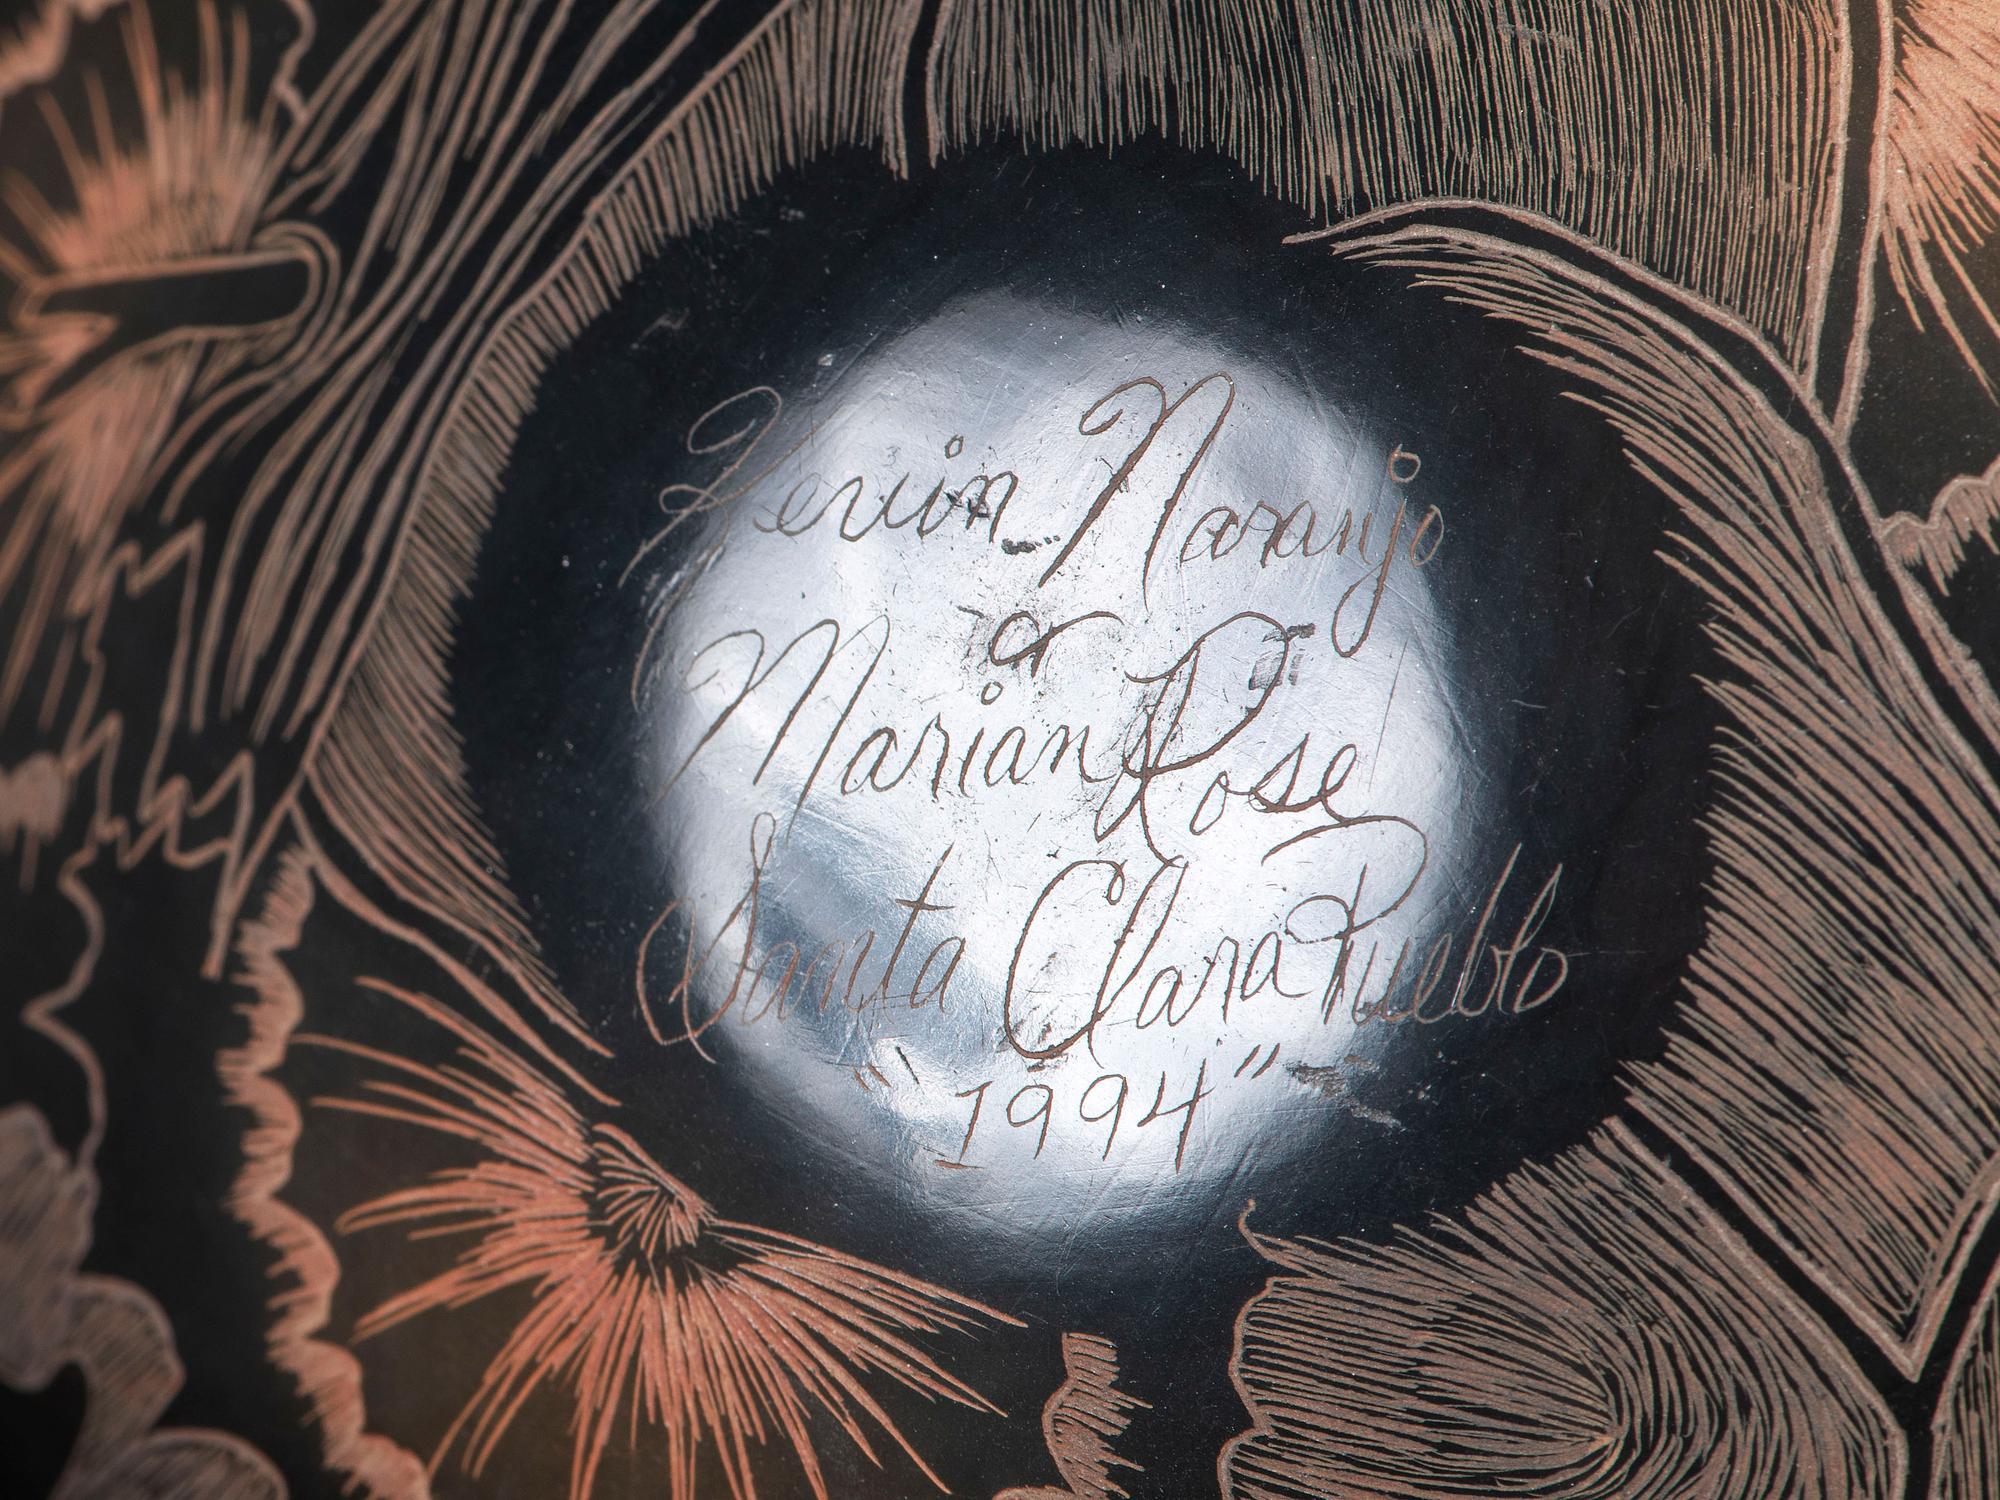 Kevin Naranjo
&
Marian Rose
Santa Clara Pueblo
"1994"